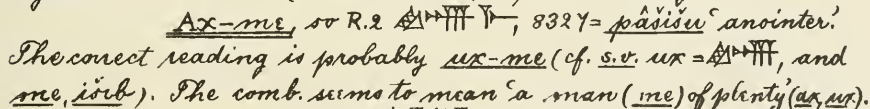 Ax-me, so R.2 , 8327 = pâšišu ‘anointer’.
The correct reading is probably ux-me (cf. s.v. ux = , and
me, išib). The comb. seems to mean ‘a man (me) of plenty’ (ax, ux).